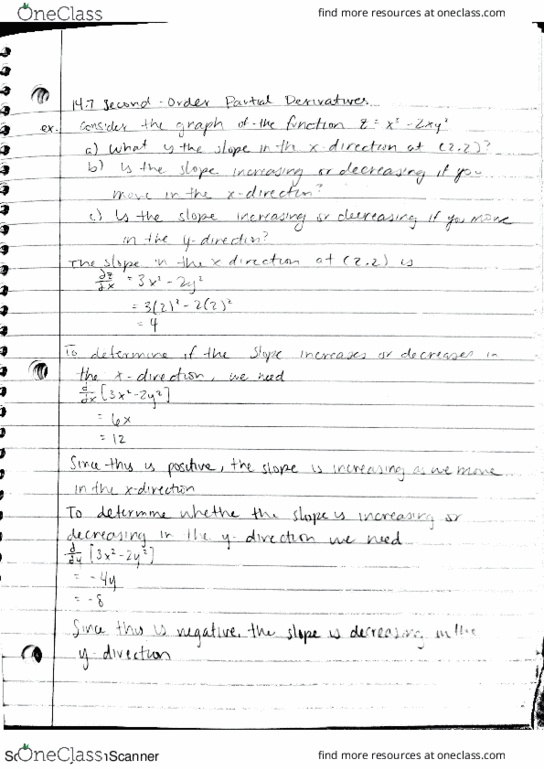 OneClass find more resources at oneclass.com
14.7 Second-Order Partial Derivatives
ex. Consider the graph of the function z = x³ - 2xy²
a) What is the slope in th x-direction at (2,2)?
b) Is the slope increasing or decreasing if you
move in the x-direction?
c) Is the slope increasing or decreasing if you move
in the y-direction?
The slope in the x direction at (2,2) is
∂z/∂x = 3x² - 2y²
= 3(2)² - 2(2)²
= 4
To determine if the slope increases or decreases in
the x-direction, we need
∂/∂x [3x² - 2y²]
= 6x
= 12
Since this is positive, the slope is increasing as we move
in the x-direction
To determine whethe the slope is increasing or
decreasing in the y-direction we need
∂/∂y [3x² - 2y²]
= -4y
= -8
Since this is negative, the slope is decreasing in the
y-direction
OneClass Scanner find more resources at oneclass.com